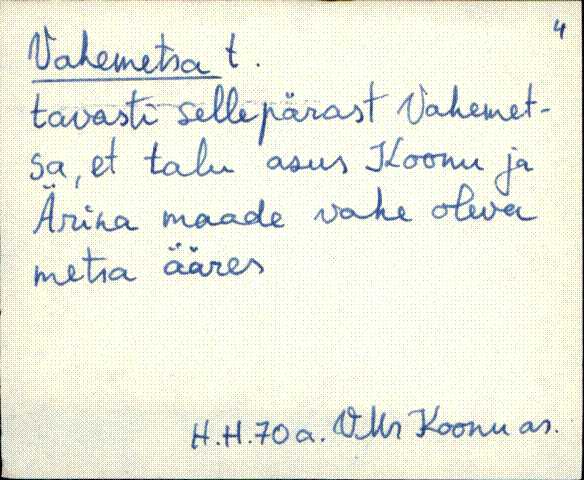 4
Vahemetsa t.
tavasti sellepärast Vahemet-
sa, et talu asus Koonu ja
Ärina maade vahe oleva
metsa ääres
H.H. 70 a. VMr Koonu as.